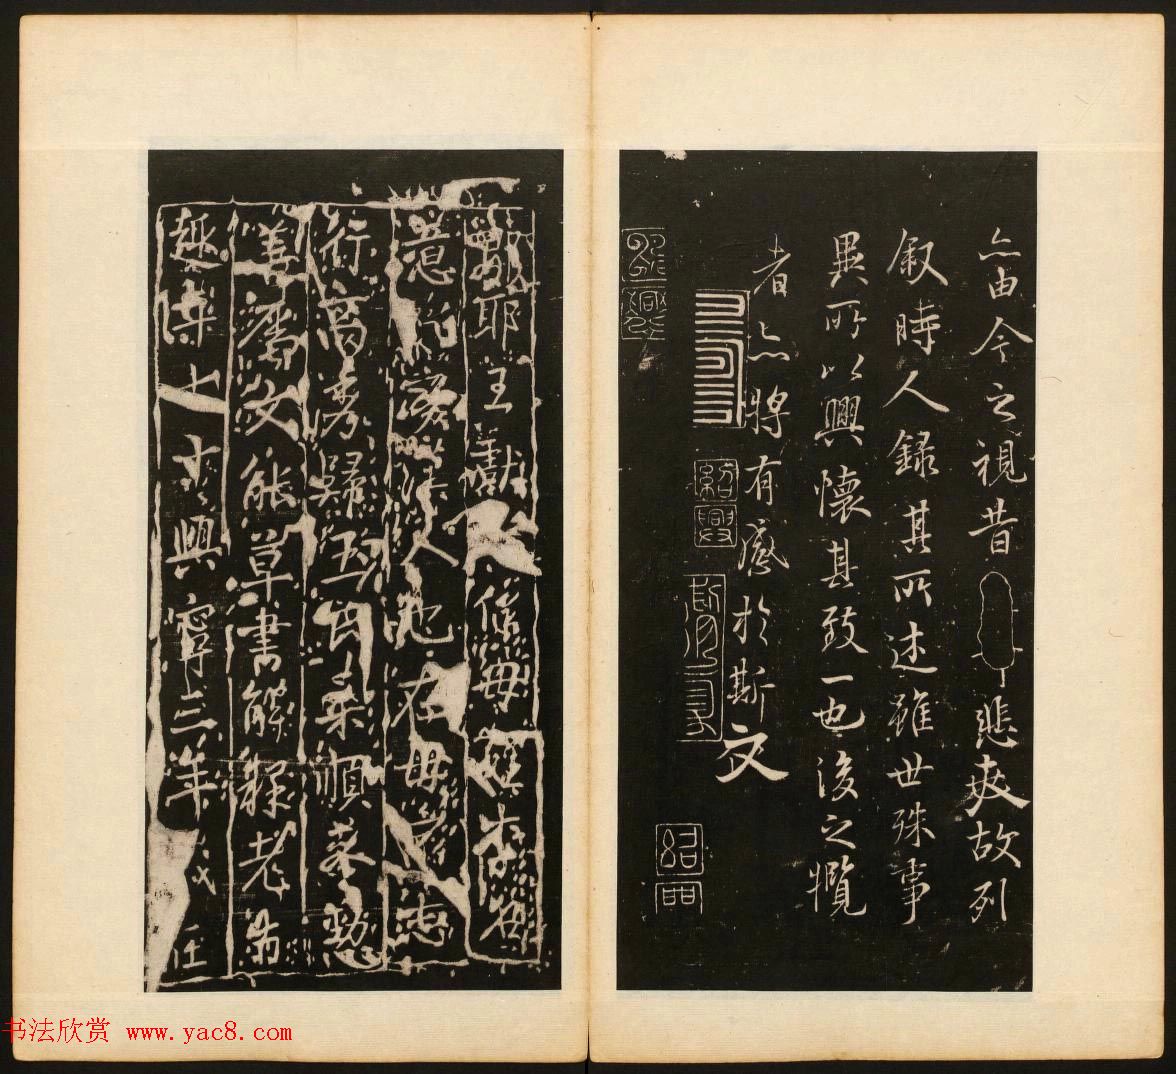 亦由今之視昔悲夫故列
叙時人錄其所述雖世殊事
異所以興懷其致一也後之攬
者亦將有感於斯文
紹興
郎耶王獻之保母姓李名
意如廣漢人也在母家志
行高秀歸王氏柔順恭懃
善屬文能草書解釋老旨
趣年七十興寧三年
书法欣赏 www.yac8.com